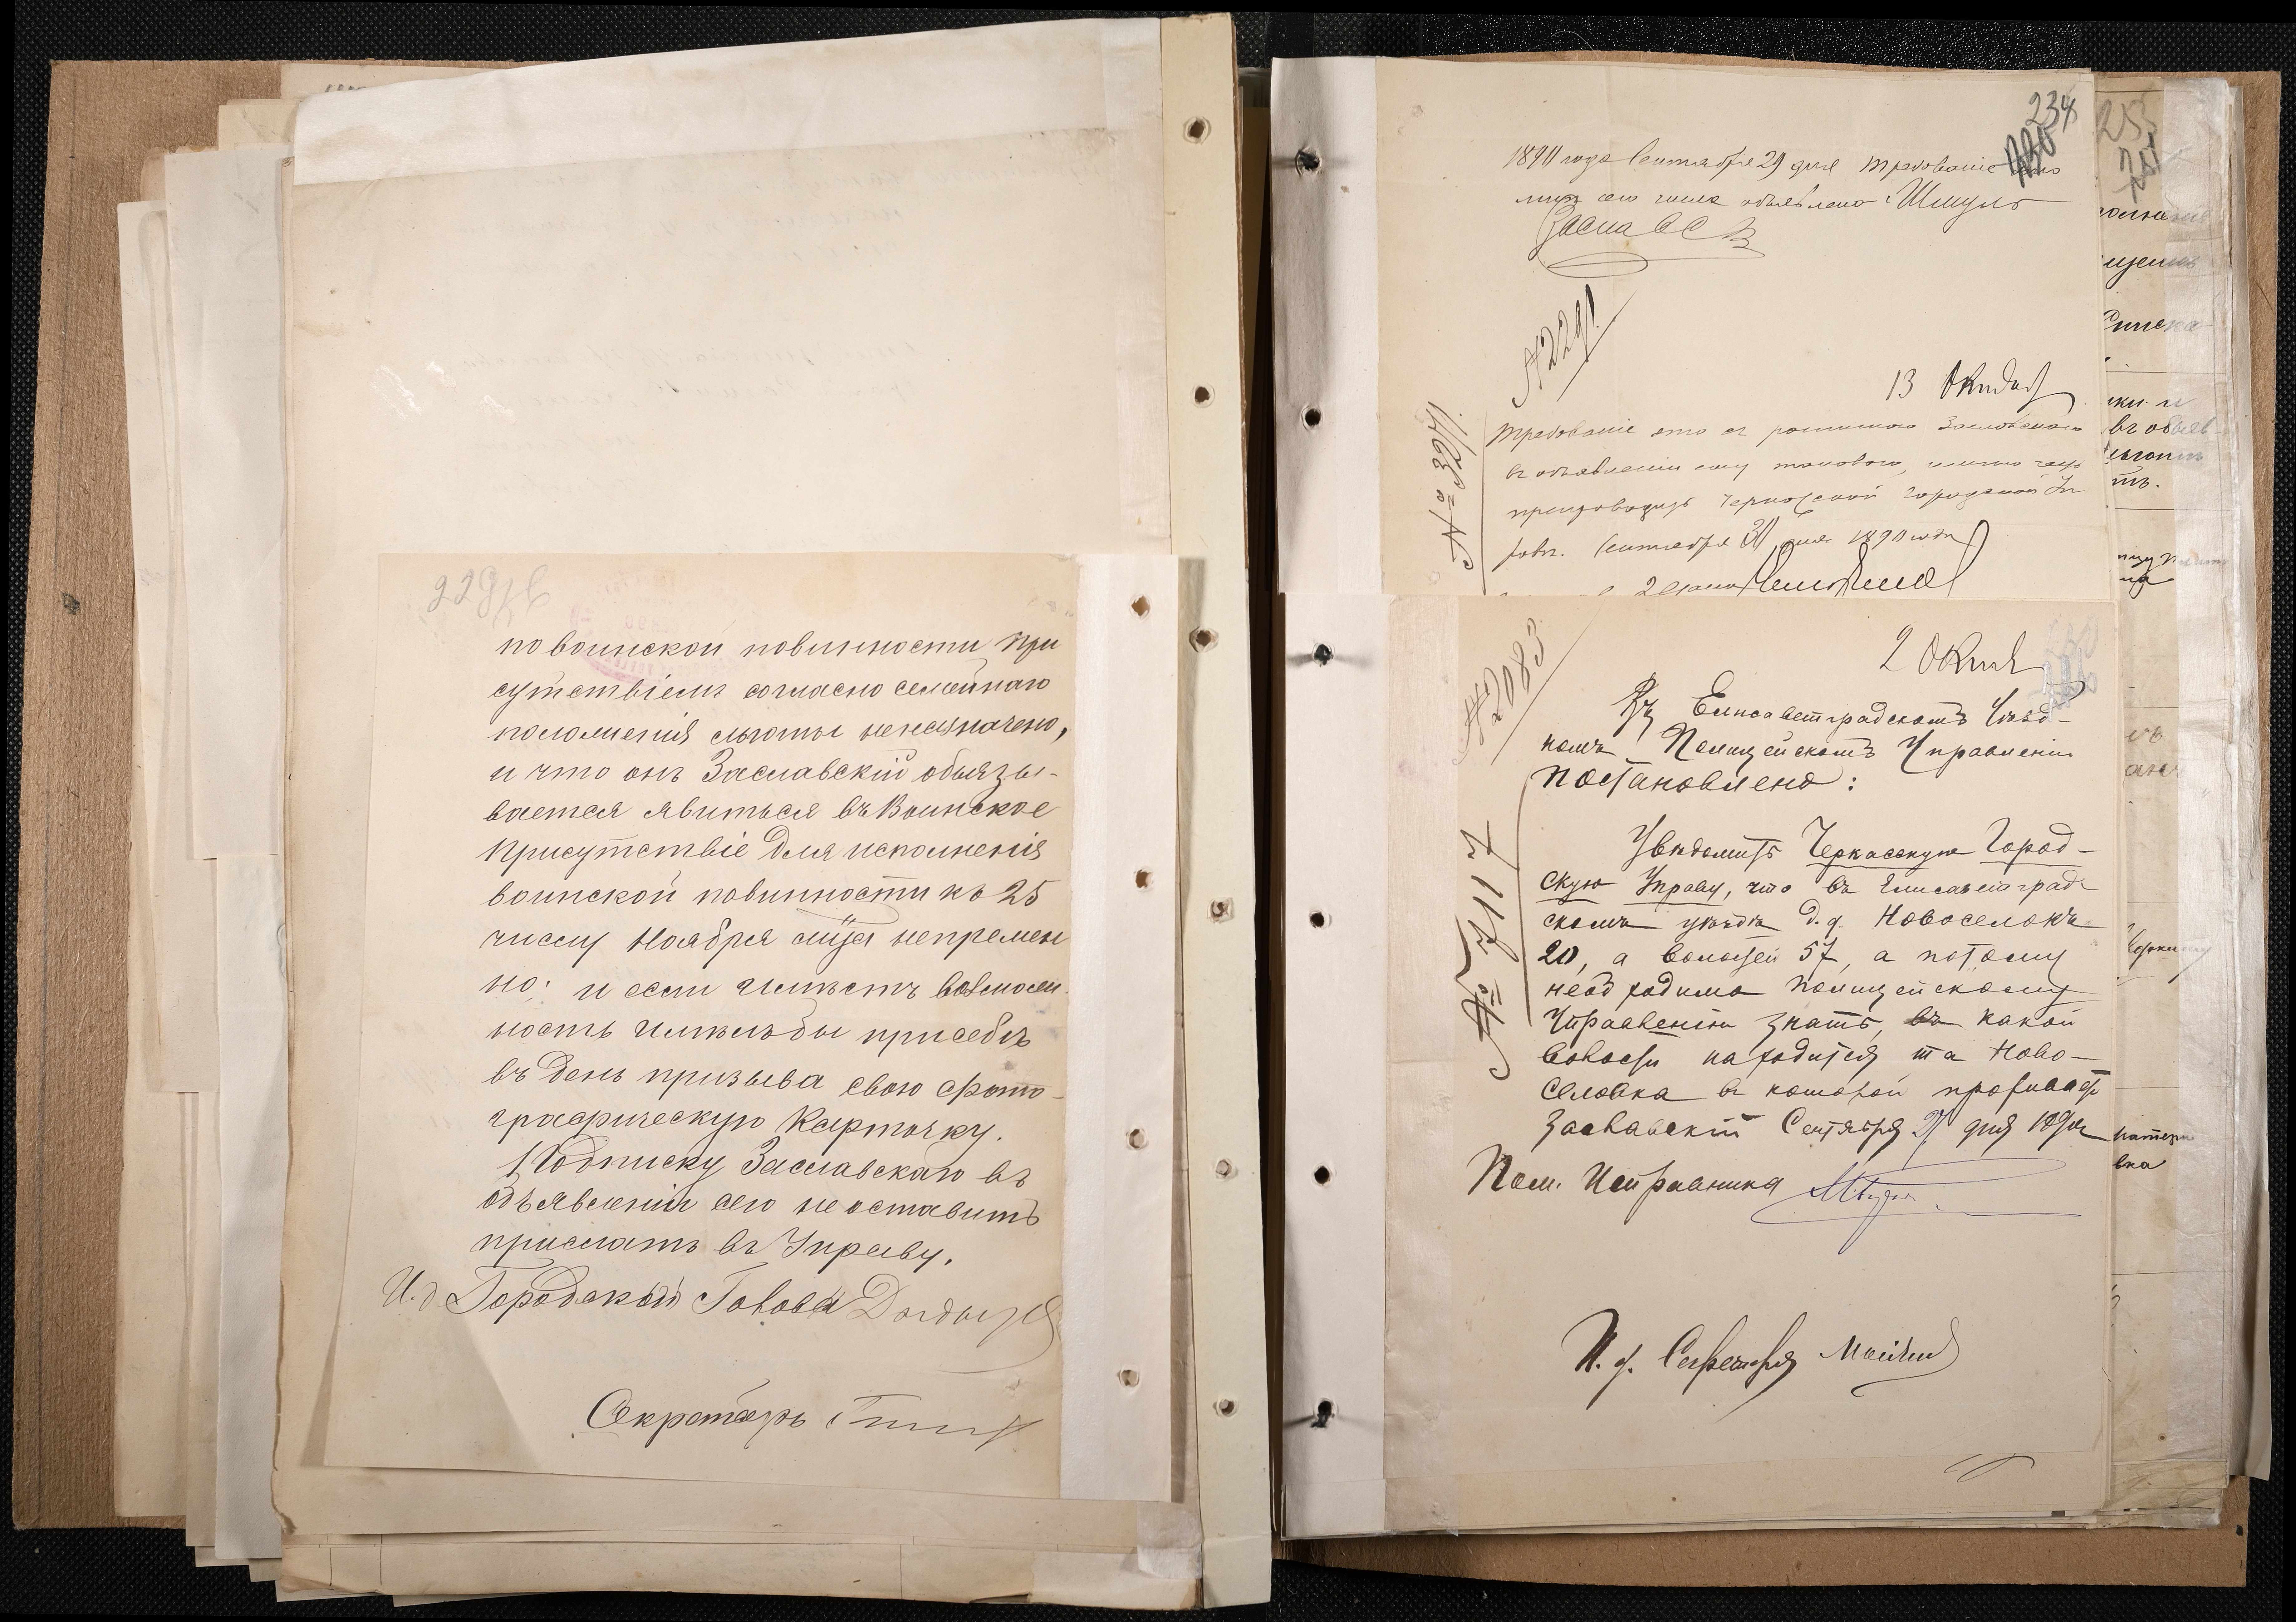 по воинской повинности при
сутствіемъ согласно семейнаго
положенія льготы не назначено,
и что онъ Заславскій обязы-
вается явиться въ Воинское
Присутствіе для исполненія
воинской повинности къ 25
числу Ноября непремен
но; и если имѣетъ возможн
ность имѣлъ бы при себѣ
въ день призыва свою фото-
графическую карточку.
Подписку Заславскаго въ
объявленіи сего не оставить
прислать въ Управу.
И. д. Городской Голова
Секретарь
234
230
1890 года Сентября 29 дня требованіе
сего числа объявлено Шмулъ
Заславск
№ 2291
№ 3271
13 Октяб
Требованіе это съ роспискою Заславскаго
въ объявленіи ему таковаго,
препроводить Черкасской Городской Уп
равѣ. Сентября 30 дня 1890 года
№ 2083
2 Октяб
Въ Елисаветградскомъ Уѣзд-
номъ Полицейскомъ Управленіи
постановлено:
№ 7117
Увѣдомить Черкасскую Город-
скую Управу, что въ Елисаветград
скомъ уѣздѣ Новоселокъ
20, а волостей 57, а потому
необходимо Полицейскому
Управленію знать, въ какой
волости находится та Ново-
селовка въ которой проживаетъ
Заславскій Сентября 27 дня 1890 г
Пом. Исправника
И. д. Секретаря